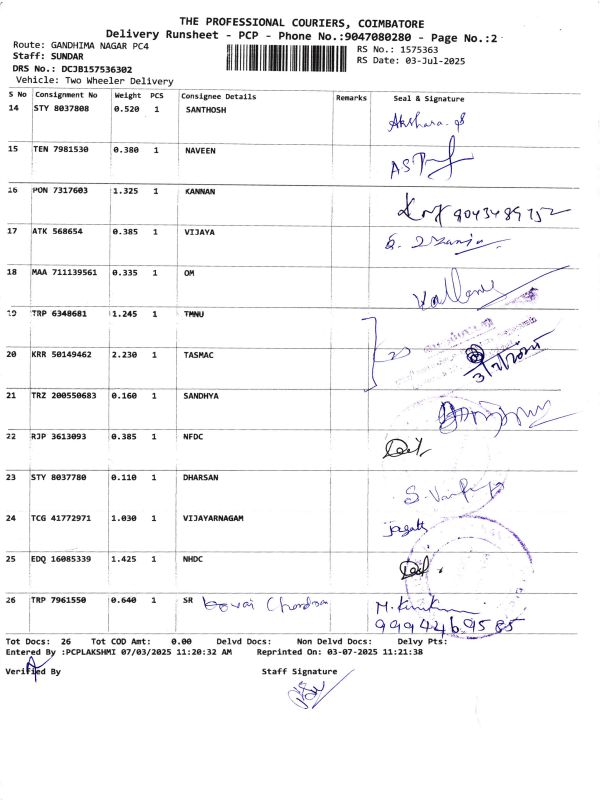 THE PROFESSIONAL COURIERS, COIMBATORE
Delivery Runsheet - PCP - Phone No.:9047080280 - Page No.:2
Route: GANDHIMA NAGAR PC4
Staff: SUNDAR
DRS No.: DCJB157536302
Vehicle: Two Wheeler Delivery
RS No.: 1575363
RS Date: 03-Jul-2025
S No Consignment No Weight PCS Consignee Details Remarks Seal & Signature
14 STY 8037808 0.520 1 SANTHOSH Akshara.
15 TEN 7981530 0.380 1 NAVEEN
16 PON 7317603 1.325 1 KANNAN 9043489752
17 ATK 568654 0.385 1 VIJAYA
18 MAA 711139561 0.335 1 OM
19 TRP 6348681 1.245 1 TMNU
20 KRR 50149462 2.230 1 TASMAC
21 TRZ 200550683 0.160 1 SANDHYA
22 RJP 3613093 0.385 1 NFDC
23 STY 8037780 0.110 1 DHARSAN
24 TCG 41772971 1.030 1 VIJAYARNAGAM
25 EDQ 16085339 1.425 1 NHDC
26 TRP 7961550 0.640 1 SR
9994469585
Tot Docs: 26 Tot COD Amt: 0.00 Delvd Docs: Non Delvd Docs: Delvy Pts:
Entered By :PCPLAKSHMI 07/03/2025 11:20:32 AM Reprinted On: 03-07-2025 11:21:38
Verified By Staff Signature